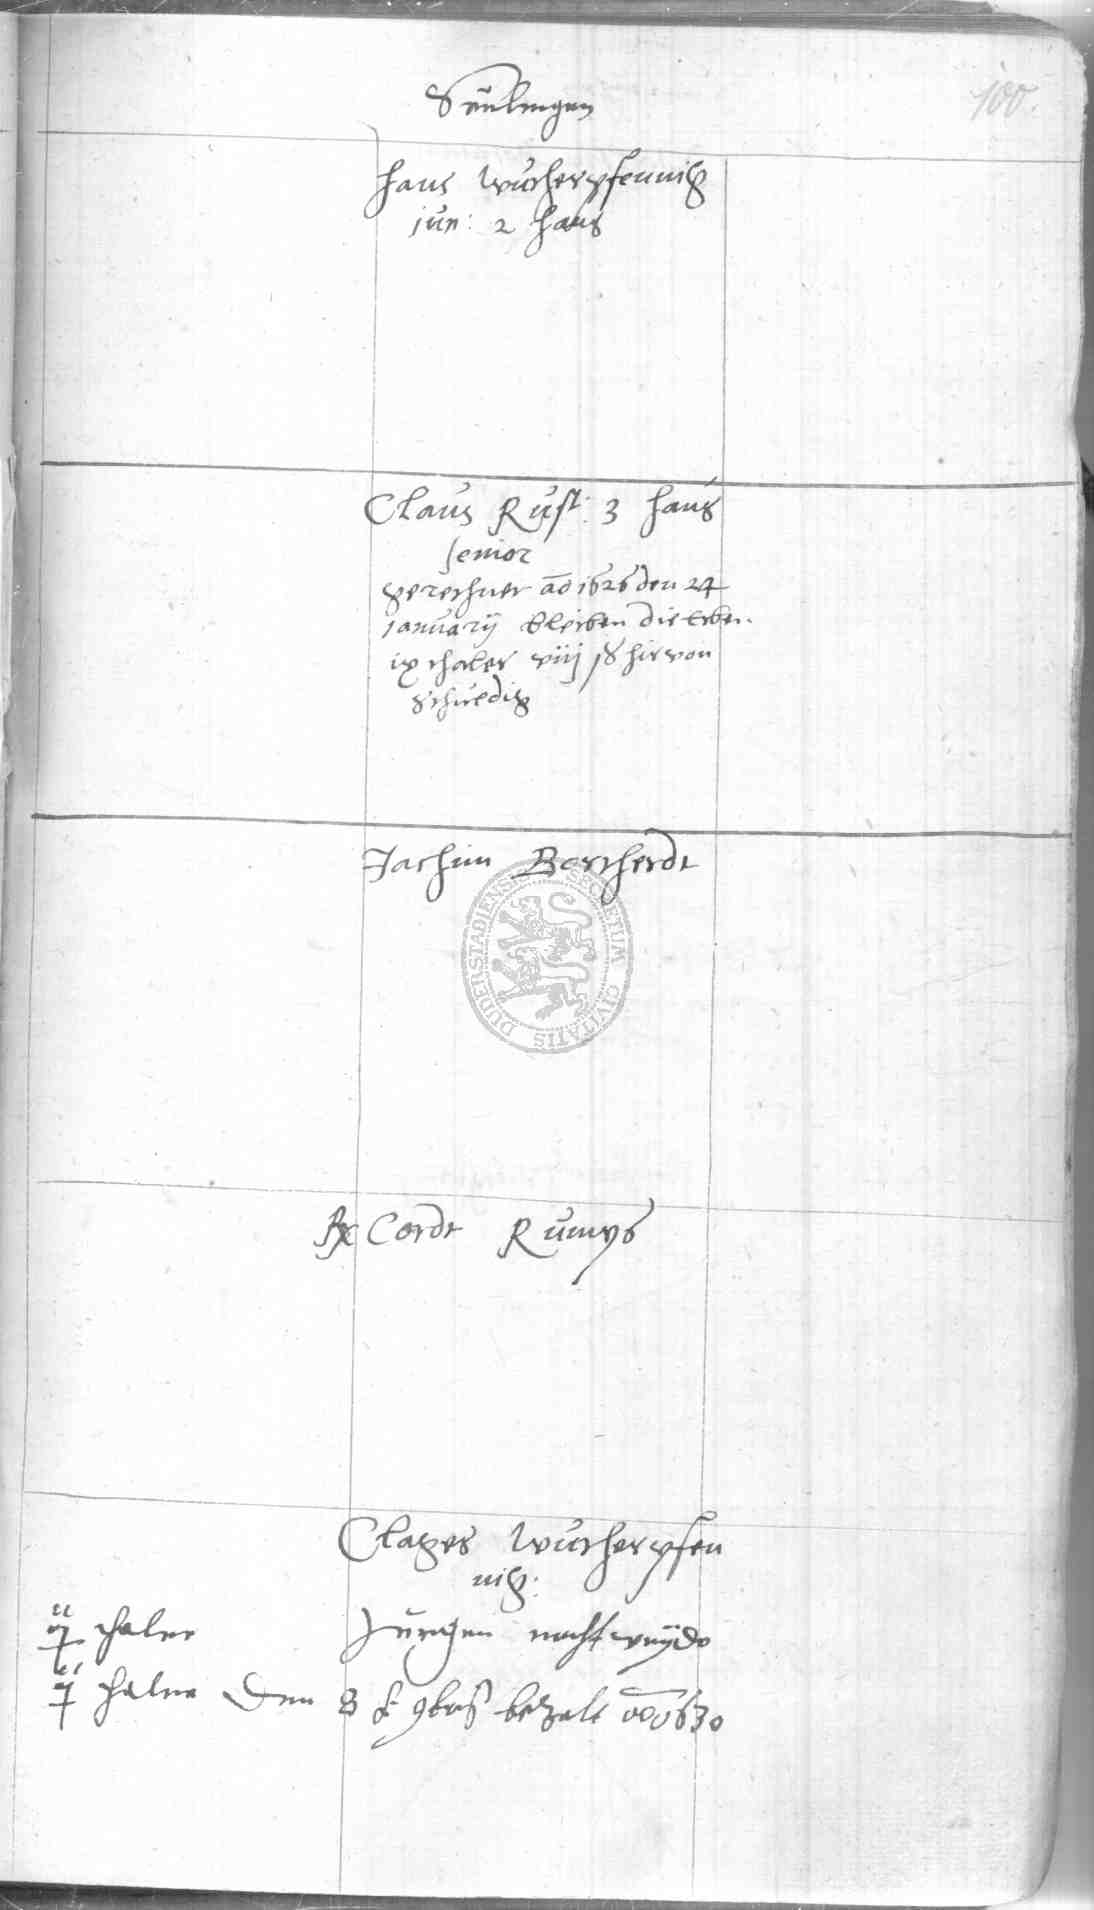 Seulingen
100.
Hans Wucherpfennig
jun: 2 Haus
Claus Rust: 3 Haus
senior
gerechnet ao 1626 den 24
January bleiben die Erben
ix thaler viij ß hirvon
schuldig
Jachim Borcherdt
SECRETUM CIVITATIS DUDERSTADIENSIS
Cordt Rumps
Clages Wucherpfen
nig:
thaler Jurgen nachtweyde
thaler den 8 9bris bezalt 1630